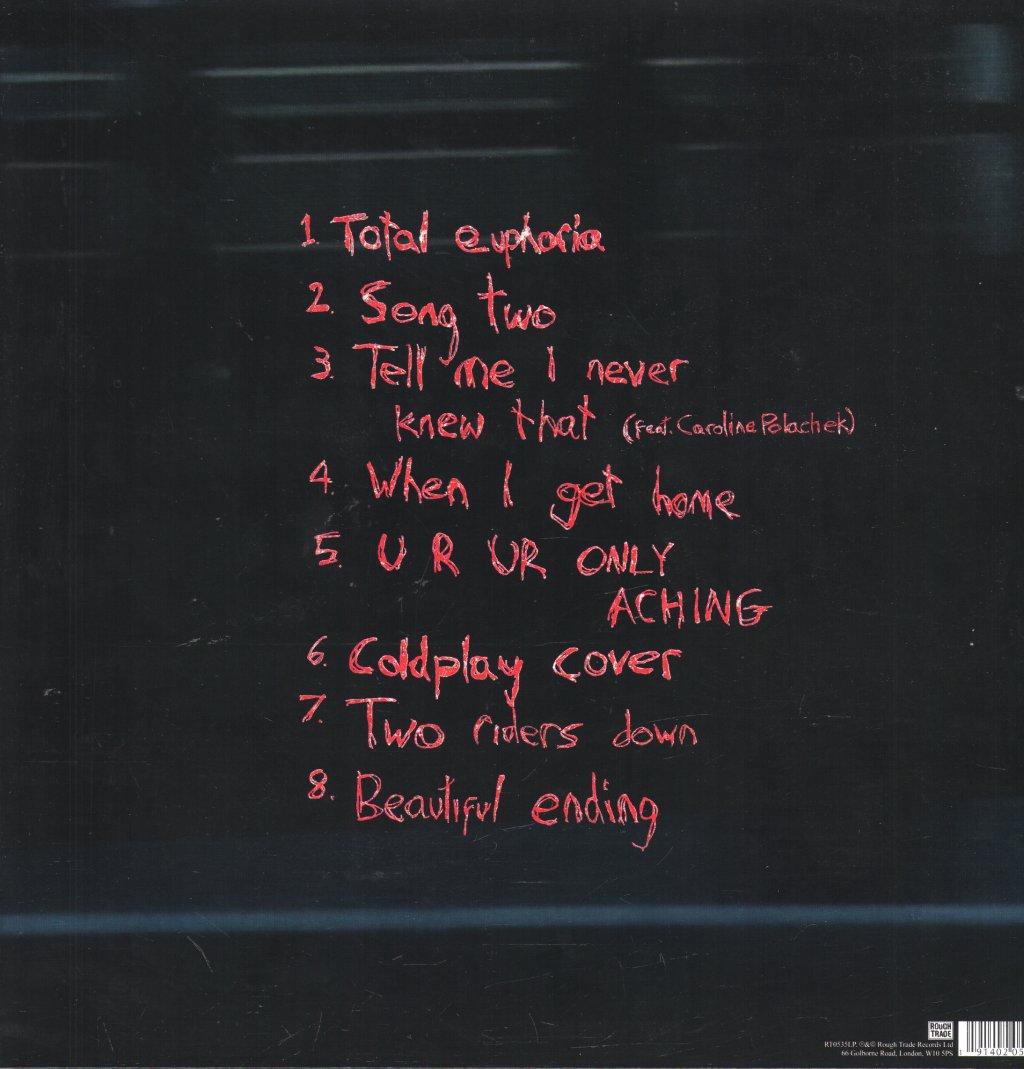 1 Total euphoria
2. Song two
3. Tell me I never
knew that (feat. Caroline Polachek)
4. When I get home
5. U R UR ONLY
ACHING
6. Coldplay cover
7. Two riders down
8. Beautiful ending
ROUGH
TRADE
RT0535LP. ℗&© Rough Trade Records Ltd
66 Golborne Road, London, W10 5PS
1 91402 05